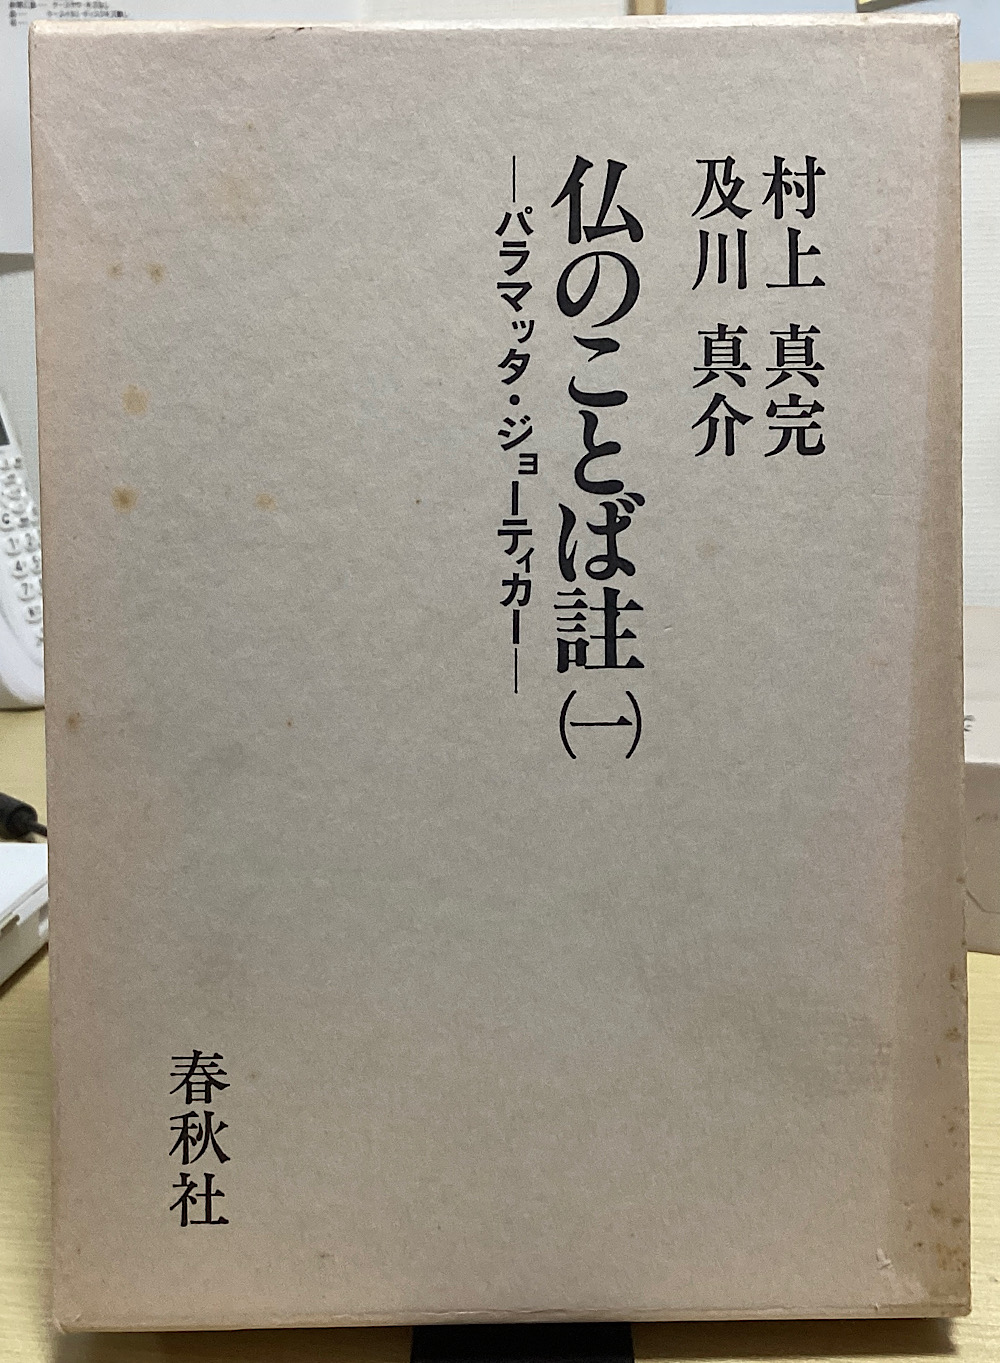 村上 真完
及川 真介
仏のことば註(一)
―パラマッタ・ジョーティカー―
春秋社